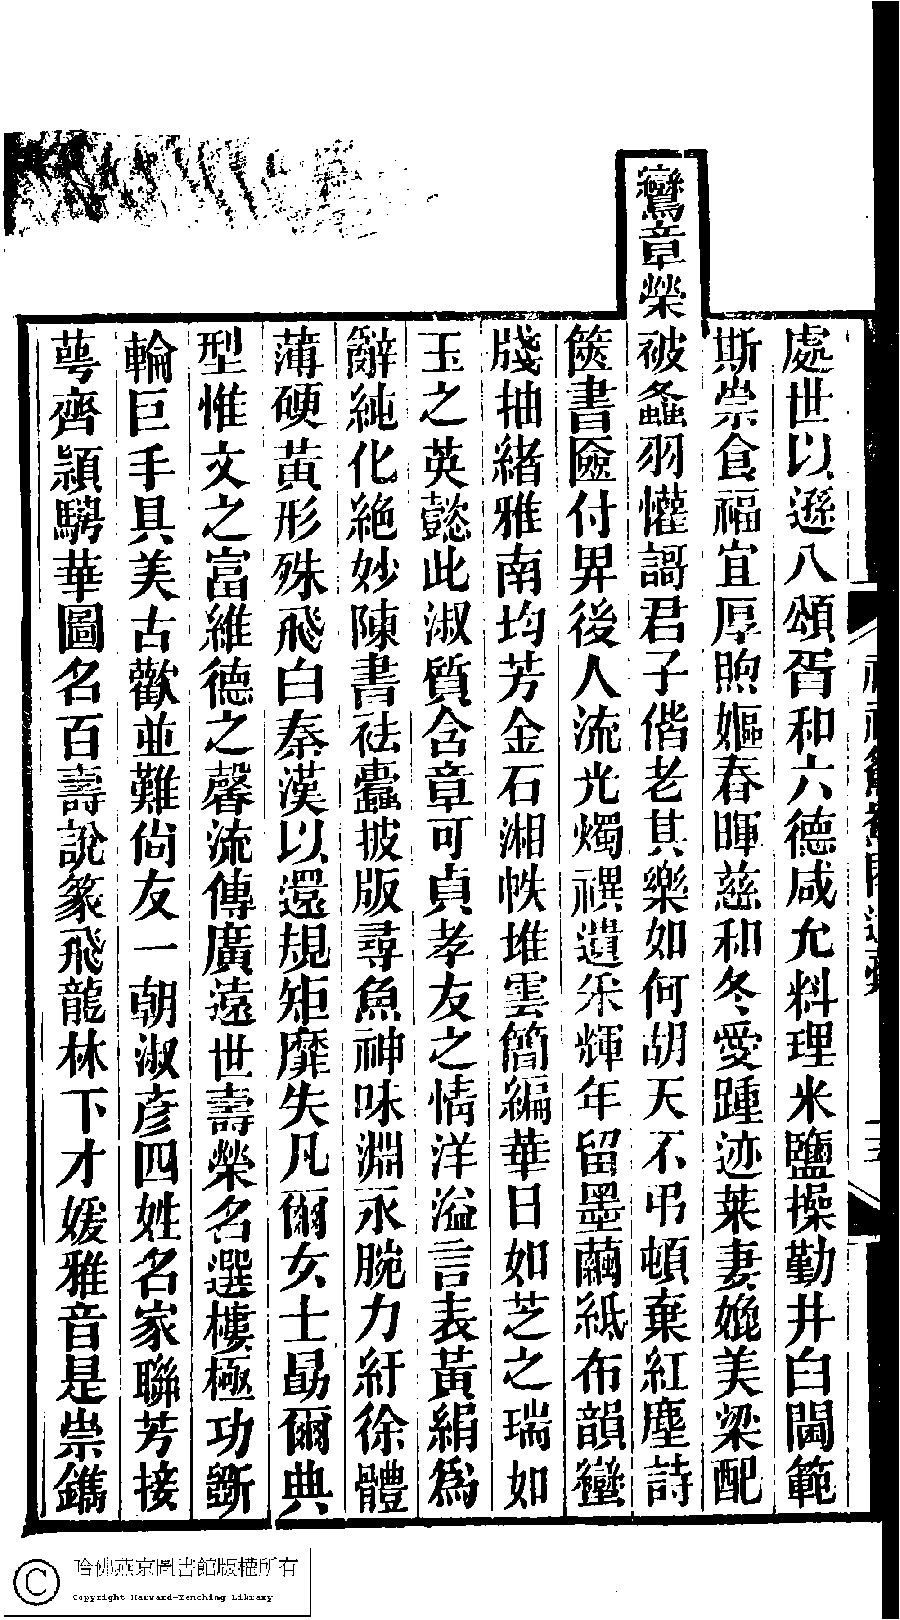 處世以遜八頌胥和六德咸允料理米鹽操勤井臼閫範
斯崇食福宜厚煦嫗春暉慈和冬愛踵迹萊妻媲美梁配
鸞章榮被螽羽懽謌君子偕老其樂如何胡天不弔頓棄紅塵詩
篋書匳付畀後人流光燭禩遺采輝年留墨繭紙布韻蠻
牋抽緒雅南均芳金石湘帙堆雲簡編華日如芝之瑞如
玉之英懿此淑質含章可貞孝友之情洋溢言表黃絹爲
辭純化絶妙陳書祛蠹披版尋魚神味淵永腕力紆徐體
薄硬黃形殊飛白秦漢以還規矩靡失凡爾女士勗爾典
型惟文之富維德之馨流傳廣遠世壽榮名選樓極功斵
輪巨手具美古歡並難尙友一朝淑彥四姓名家聯芳接
萼齊潁騁華圖名百壽說篆飛龍林下才媛雅音是崇鐫
哈佛燕京圖書館版權所有
Copyright Harvard-Yenching Library